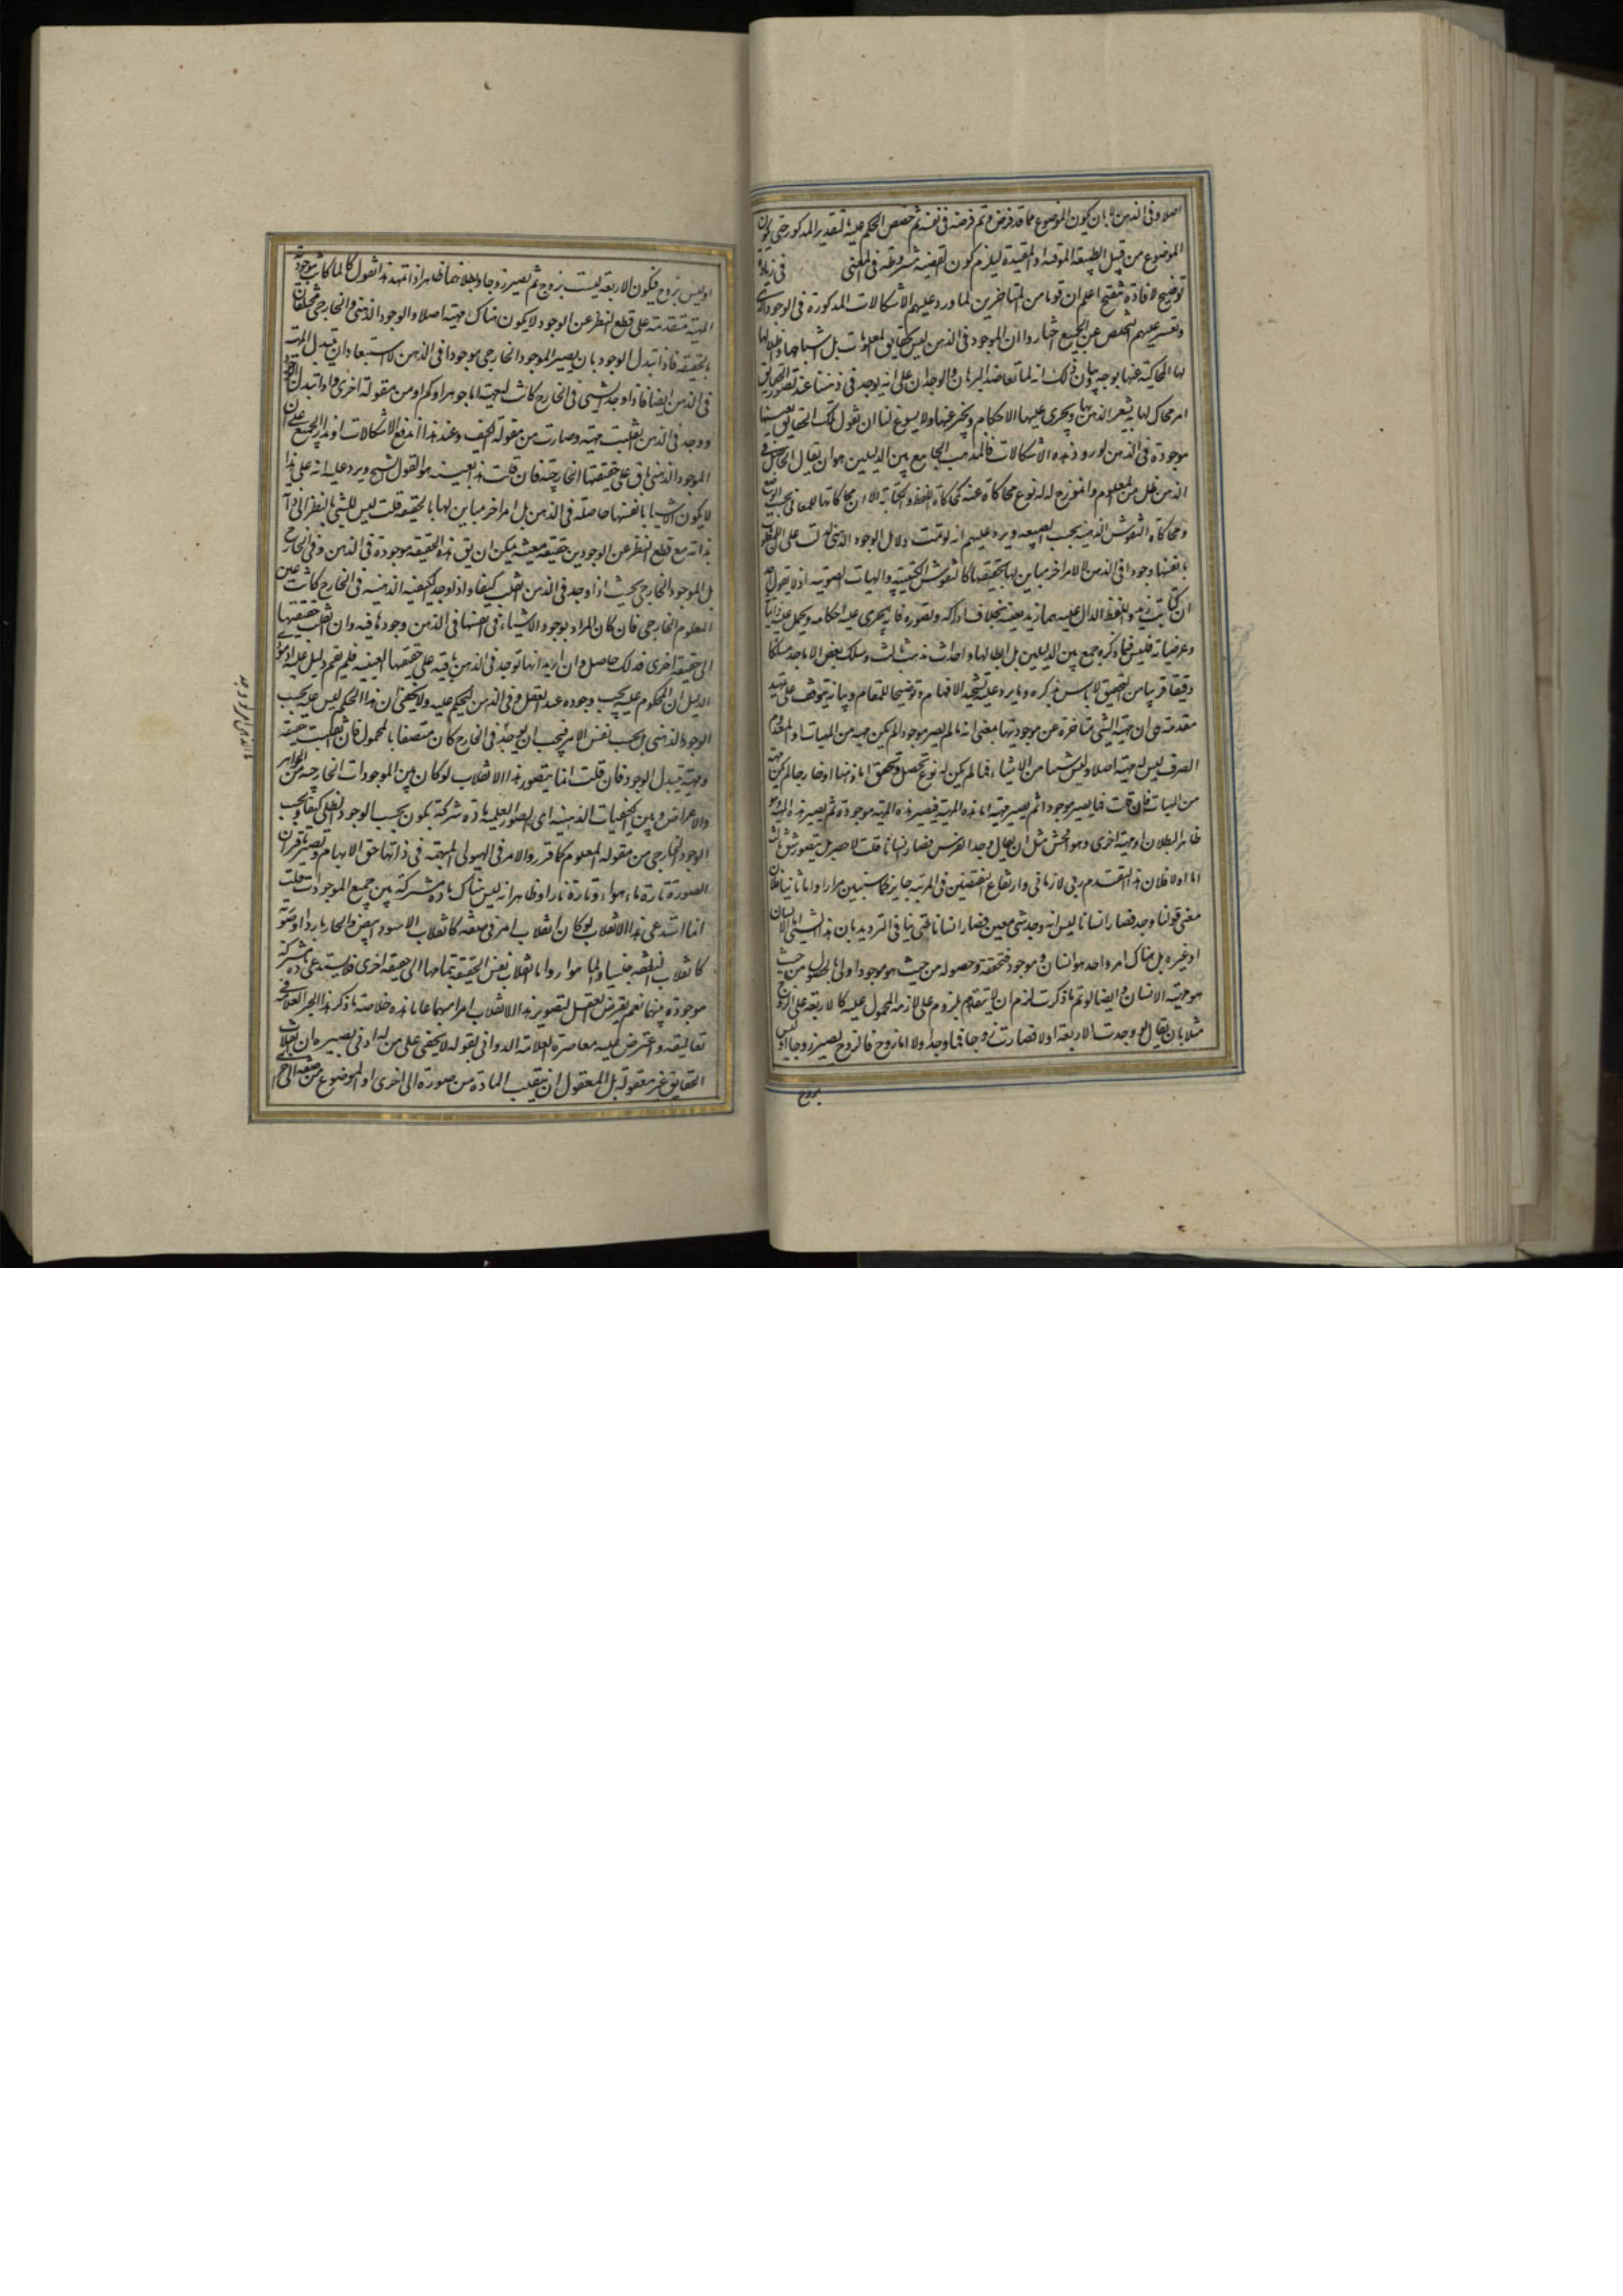 اصلا و فى الذهن بان يكون الموضوع مما قد فرض و تم فرضه فى نفسه ثم خصص الحكم عليه بالتقدير المذكور حتى يكون
الموضوع من قبيل الطبيعة الموقتة او المقيدة ليلزم كون القضية مشروطة فى المعنى فى زيادة
توضيح لافادة تنقيح اعلم ان قوما من المتاخرين لما ورد عليهم الاشكالات المذكورة فى الوجود الذهنى
و تعسر عليهم التخلص عن الجميع اختاروا ان الموجود فى الذهن ليس حقايق المعلومات بل اشباحها و اظلالها
لها المحاكية عنها بوجه و بيان ذلك انه لما تعاضد البرهان و الوجدان على انه يوجد فى ذهننا عند تصور الحقايق
امر محاكى لها به يشعر الذهن بها و يجرى عليها الاحكام و يخبر عنها و لا يسوغ لنا ان نقول تلك الحقايق بعينها
موجودة فى الذهن لورود هذه الاشكالات فالمذهب الجامع بين الدليلين هو ان يقال الحاصل فى
الذهن ظل من المعلوم و انموزج له له نوع محاكاة عنه كمحاكاة اللفظ و الكتابة الا ان محاكاتها للمعانى بحسب الوضع
و محاكاة النقوش الذهنية بحسب الطبيعة و يرد عليهم انه لو تمت دلائل الوجود الذهنى لدلت على ان للمعلومات
بانفسها وجودا فى الذهن لا لامر اخر مباين لها بحقيقتها كالنقوش الكتبية و الهيات الصوتية اذ لا يقول احد
ان كتابة زيد و اللفظ الدال عليه هما زيد بعينه بخلاف ادراكه و تصوره فانه يجرى عليه احكامه و يحمل عليه ذاتياته
و عرضياته فليس فيما ذكره جمع بين الدليلين بل ابطالهما و احداث مذهب ثالث و سلك بعض الاماجد مسلكا
دقيقا قريبا من التحقيق لا باس بذكره و ما يرد عليه تشحيذا للافهام و توضيحا للمقام و بيانه يتوقف على تمهيد
مقدمة هى ان مهية الشئ متاخرة عن موجوديتها بمعنى انه ما لم يصر موجودا لم يكن مهية من المهيات اذ المعدوم
الصرف ليس له مهية اصلا و ليس شيئا من الاشياء فما لم يكن له نوع تحصل و تحقق اما ذهنا او خارجا لم يكن مهية
من المهيات فان قلت فما يصير موجودا ثم يصير مهية اما هذه المهية فيصير هذه المهية موجودة ثم يصير هذه المهية و هو
ظاهر البطلان او مهية اخرى و هو افحش مثل ان يقال وجد الفرس فصار انسانا قلت لا حصر بل يتصور شق ثالث
اما اولا فلان هذا التقدم رتبى لا زمانى و ارتفاع النقيضين فى المرتبة جايز كما ستبين مرارا و اما ثانيا فلان
معنى قولنا وجد فصار انسانا ليس انه وجد شئ معين فصار انسانا حتى ينافى الترديد بان هذا الشئ اما انسان
او غيره بل هناك امر واحد هو انسان و موجود فتحققه و حصوله من حيث هو موجود اولى بالحصول من حيث
هو مهية الانسان و ايضا لو تم ما ذكرت لزم ان لا يتقدم ملزوم على لازمه المحمول عليه كالاربعة على الزوج
مثلا بان يقال لو وجدت الاربعة اولا فصارت زوجا فما وجد اولا اما زوج فالزوج يصير زوجا او ليس
بزوج
او ليس بزوج فيكون الاربعة ليست بزوج ثم يصير زوجا و بطلانهما ظاهر اذا تمهد هذا نقول لما كانت موجودية
المهية متقدمة على قطع النظر عن الوجود لا يكون هناك مهية اصلا و الوجود الذهنى و الخارجى مختلفان
بالحقيقة فاذا تبدل الوجود بان يصير الموجود الخارجى موجودا فى الذهن لا استبعاد ان يتبدل المهية
فى الذهن ايضا فاذا وجد الشئ فى الخارج كانت له مهية اما جوهر او كم او من مقولة اخرى و اذا تبدل الوجود
و وجد فى الذهن انقلبت مهيته و صارت من مقولة الكيف و عند هذا اندفع الاشكالات اذ مدار الجميع على ان
الموجود الذهنى باق على حقيقتها الخارجية فان قلت هذا بعينه هو القول بالشبح و يرد عليه انه على هذا
لا يكون الاشيا بانفسها حاصلة فى الذهن بل امر اخر مباين لها بالحقيقة قلت ليس للشئ بالنظر الى
ذاته مع قطع النظر عن الوجودين حقيقة معينة يمكن ان يق هذه الحقيقة موجودة فى الذهن و فى الخارج
بل الموجود الخارجى بحيث اذا وجد فى الذهن انقلب كيفا و اذا وجد الكيفية الذهنية فى الخارج كانت عين
المعلوم الخارجى فان كان المراد بوجود الاشياء بانفسها فى الذهن وجودها فيه و ان انقلبت حقيقتها
الى حقيقة اخرى فذلك حاصل و ان اريد انها توجد فى الذهن باقية على حقيقتها العينية فلم يقم دليل عليه اذ مؤدى
الدليل ان المحكوم عليه يجب وجوده عند العقل و فى الذهن ليحكم عليه و لا يخفى ان هذا الحكم ليس عليه بحسب
الوجود الذهنى بل بحسب نفس الامر فيجب ان يوجد فى الخارج كان متصفا بالمحمول فان انقلبت حقيقة
و مهيته بتبدل الوجود فان قلت انما يتصور هذا الانقلاب لو كان بين الموجودات الخارجية من الجواهر
و الاعراض و بين الكيفيات الذهنية اى الصور العلمية مادة مشتركة يكون بحسب الوجود الظلى كيفا و بحسب
الوجود الخارجى من مقولة المعلوم كما قرروا الامر فى الهيولى المبهمة فى ذاتها حق الابهام و تصير باقتران
الصورة تارة ماء و هواء و تارة نارا و ظاهر انه ليس هناك مادة مشتركة بين جميع الموجودات قلت
انما استدعى هذا الانقلاب لو كان انقلاب امر فى صفته كانقلاب الاسود ابيض و الحار باردا او صورته
كانقلاب النطفة جنينا و الماء هواء و اما انقلاب نفس الحقيقة بتمامها الى حقيقة اخرى فلا يستدعى مادة مشتركة
موجودة بينهما نعم يفرض العقل لتصوير هذا الانقلاب امرا مبهما عاما هذه خلاصة ما ذكره هذا الحبر العلامة فى
تعاليقه و اعترض عليه معاصره العلامة الدوانى بقوله لا يخفى على من له ادنى بصيرة ان انقلاب
الحقايق غير معقول بل المعقول ان ينقلب المادة من صورة الى اخرى او الموضوع من صفة الى اخرى